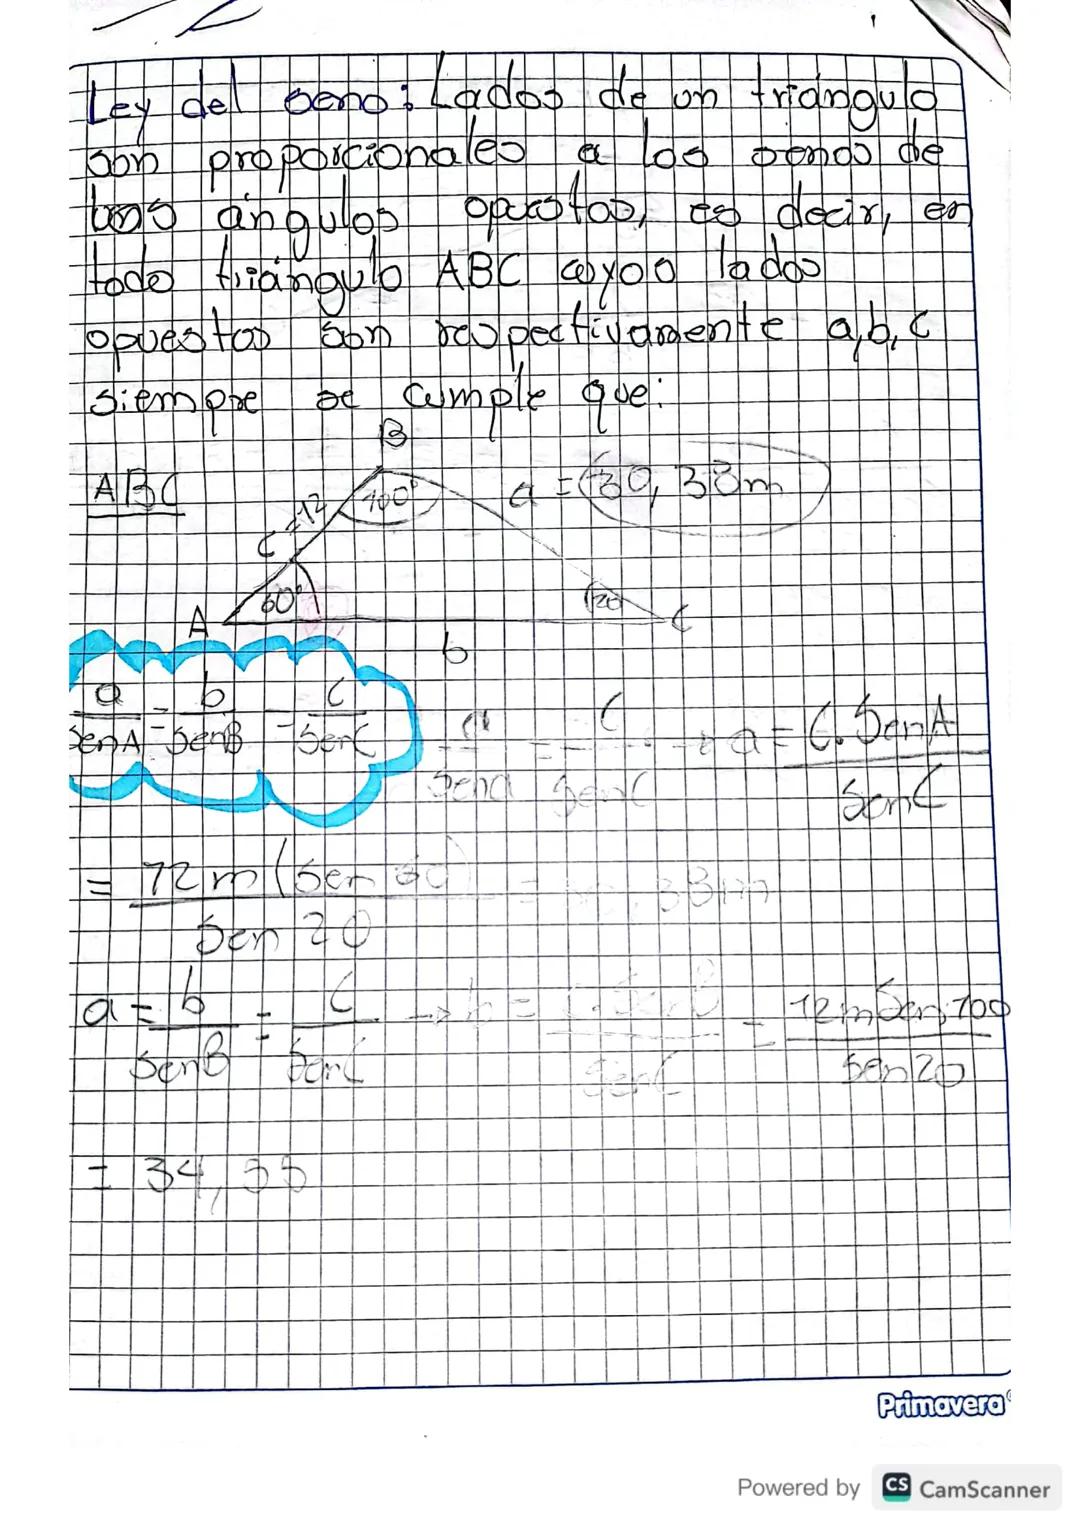 Ley del seno: Lados de un triángulo
son proporcionales a los senos de
los ángulos opuestos, es decir, en
todo triángulo ABC cuyos lados
opuestos son respectivamente a, b, c
siempre se cumple que:
B
ABC
a = 30,38m
100°
c = 12
60°
20
A
C
b
a/SenA = b/SenB = c/SenC
a/Sena = c/SenC → a = C. SenA/SenC
= 12m (Sen 60)/Sen 20 = 33m
a = b/SenB = c/SenC → b = C. SenB/SenC = 12m Sen 100/Sen 20
= 34,55
Primavera
Powered by CS CamScanner